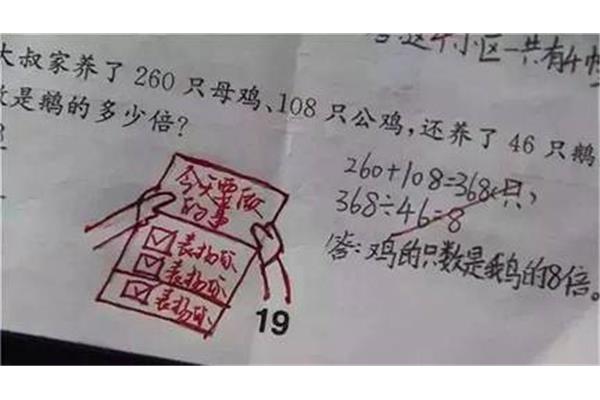 这个小区一共有4
大叔家养了260只母鸡、108只公鸡,还养了46只鹅
数是鹅的多少倍?
260+108=368(只)
368÷46=8
答:鸡的只数是鹅的8倍。
今天要做
的事
表扬你
表扬你
表扬你
19